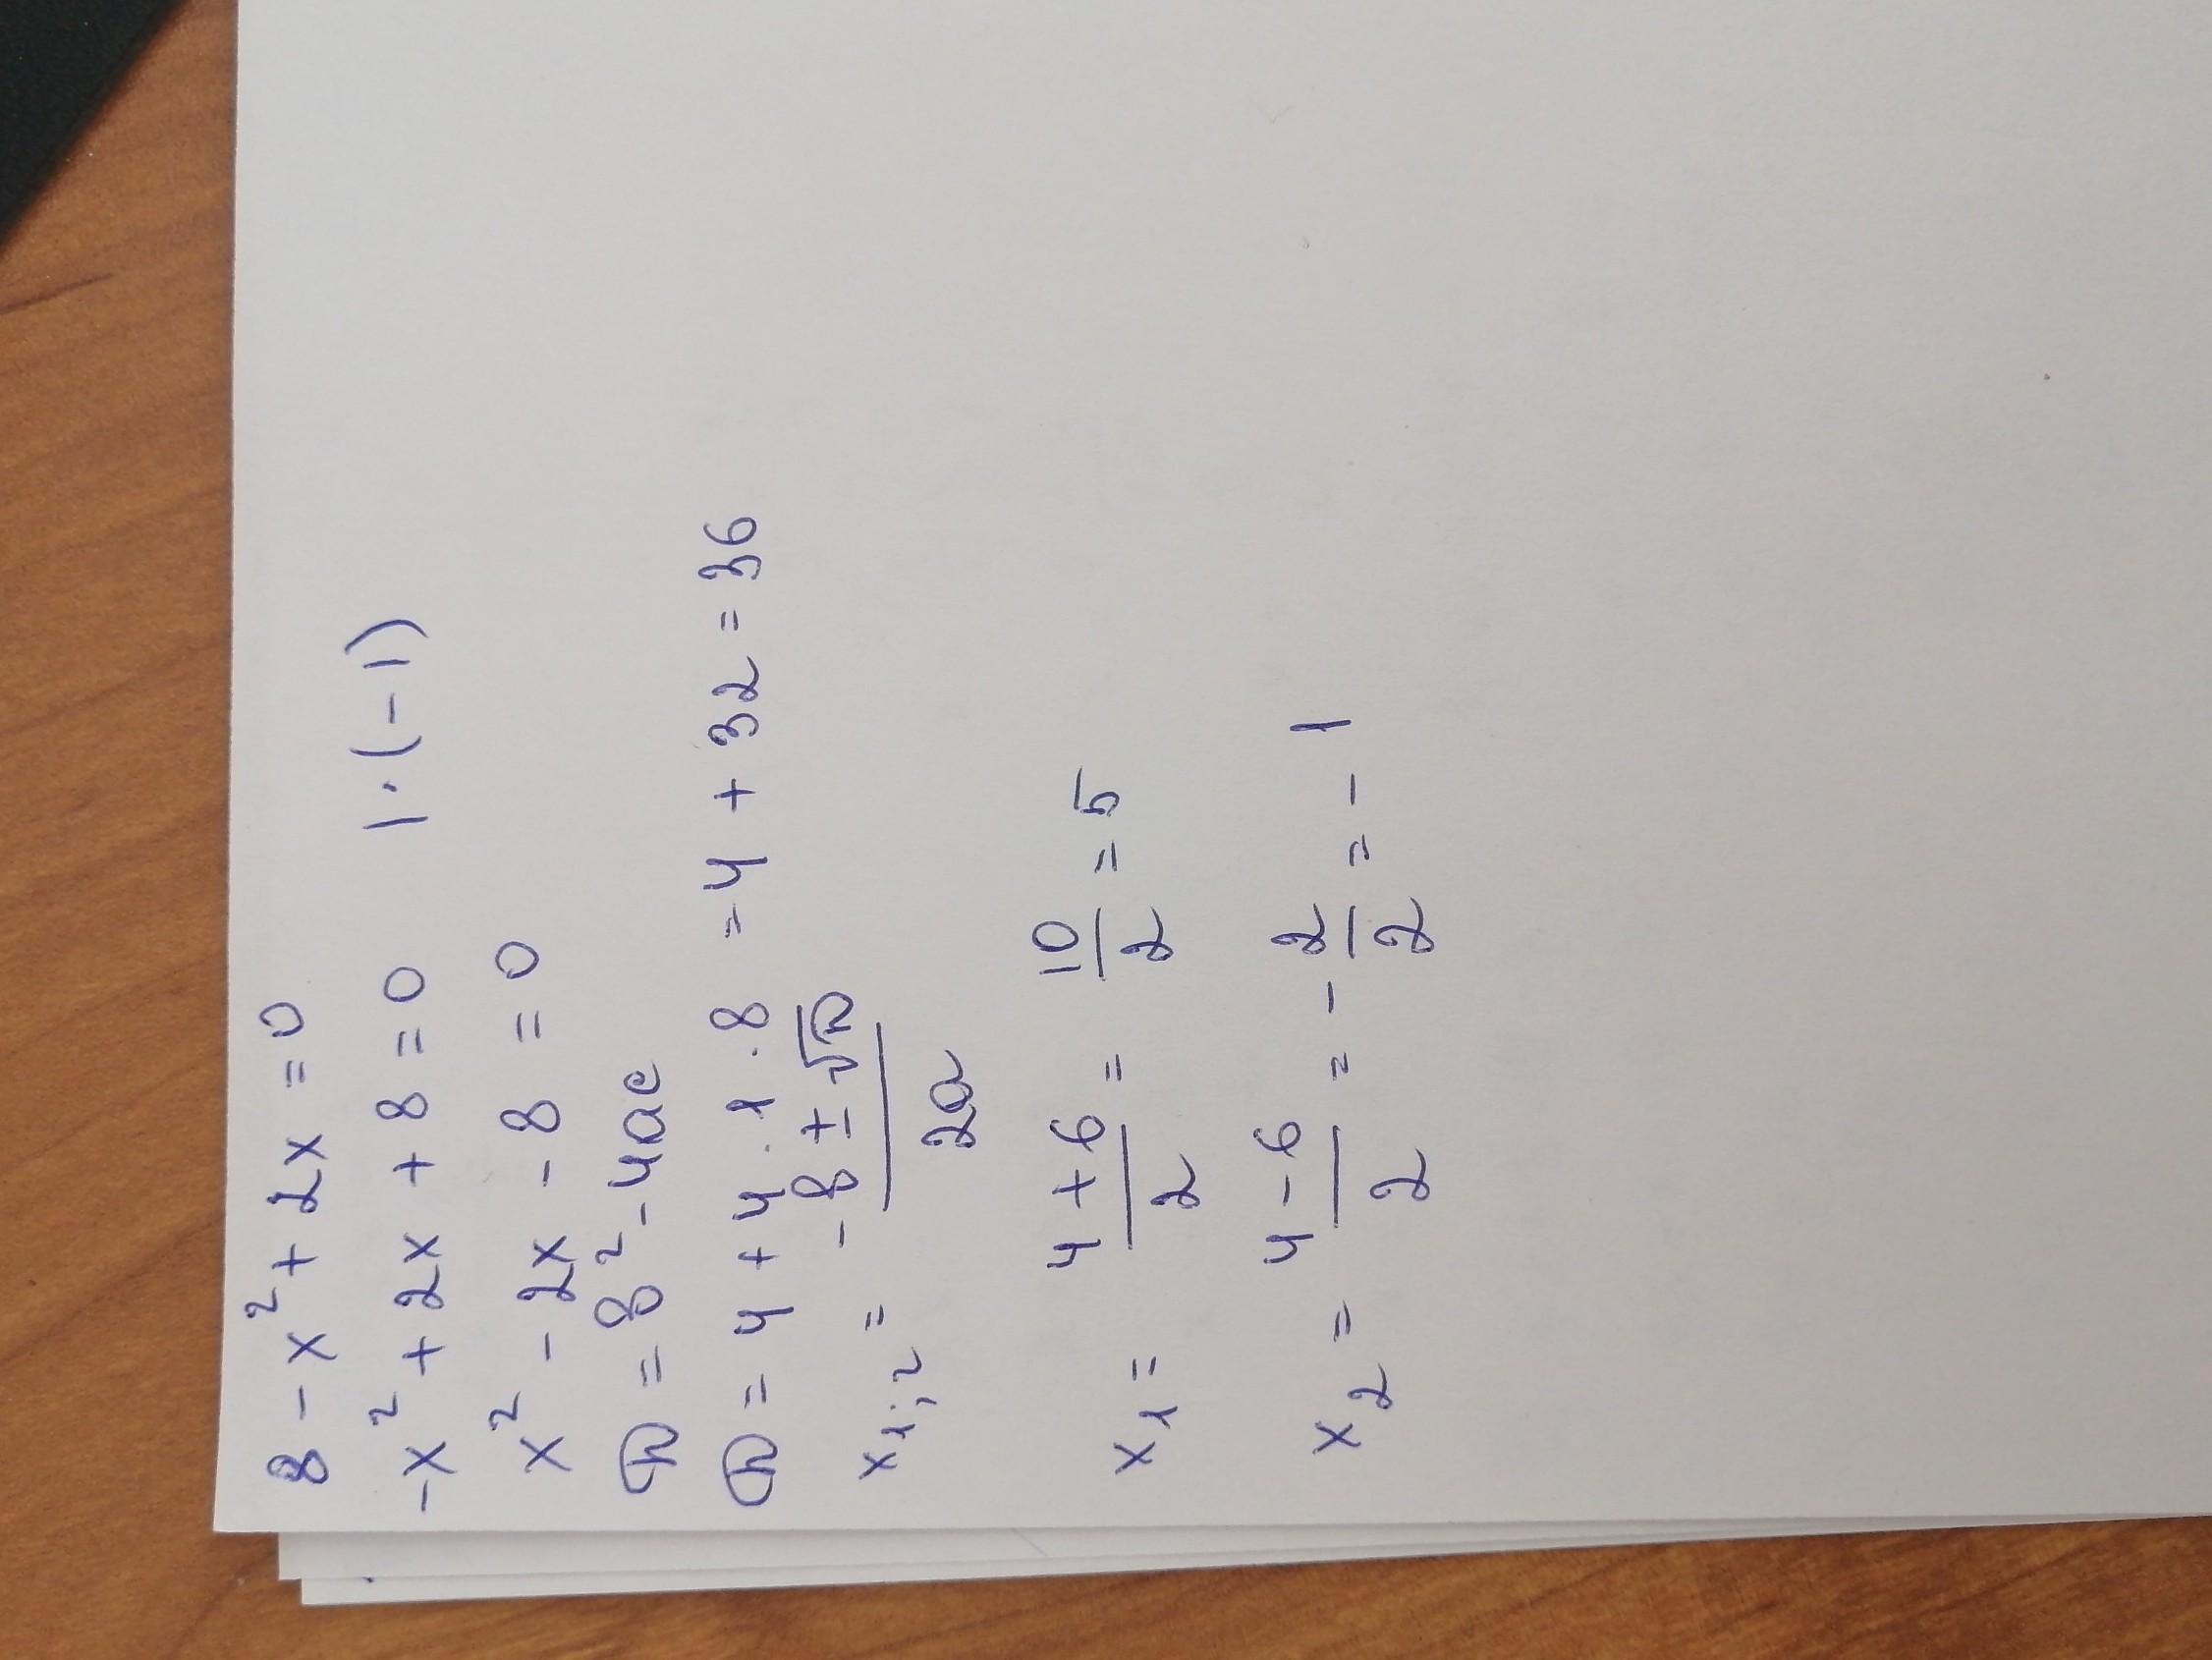 8 - x² + 2x = 0
-x² + 2x + 8 = 0 | · (-1)
x² - 2x - 8 = 0
D = в² - 4ас
D = 4 + 4 · 1 · 8 = 4 + 32 = 36
x₁;₂ = (-в ± √D) / 2а
x₁ = (4 + 6) / 2 = 10 / 2 = 5
x₂ = (4 - 6) / 2 = - 2 / 2 = - 1